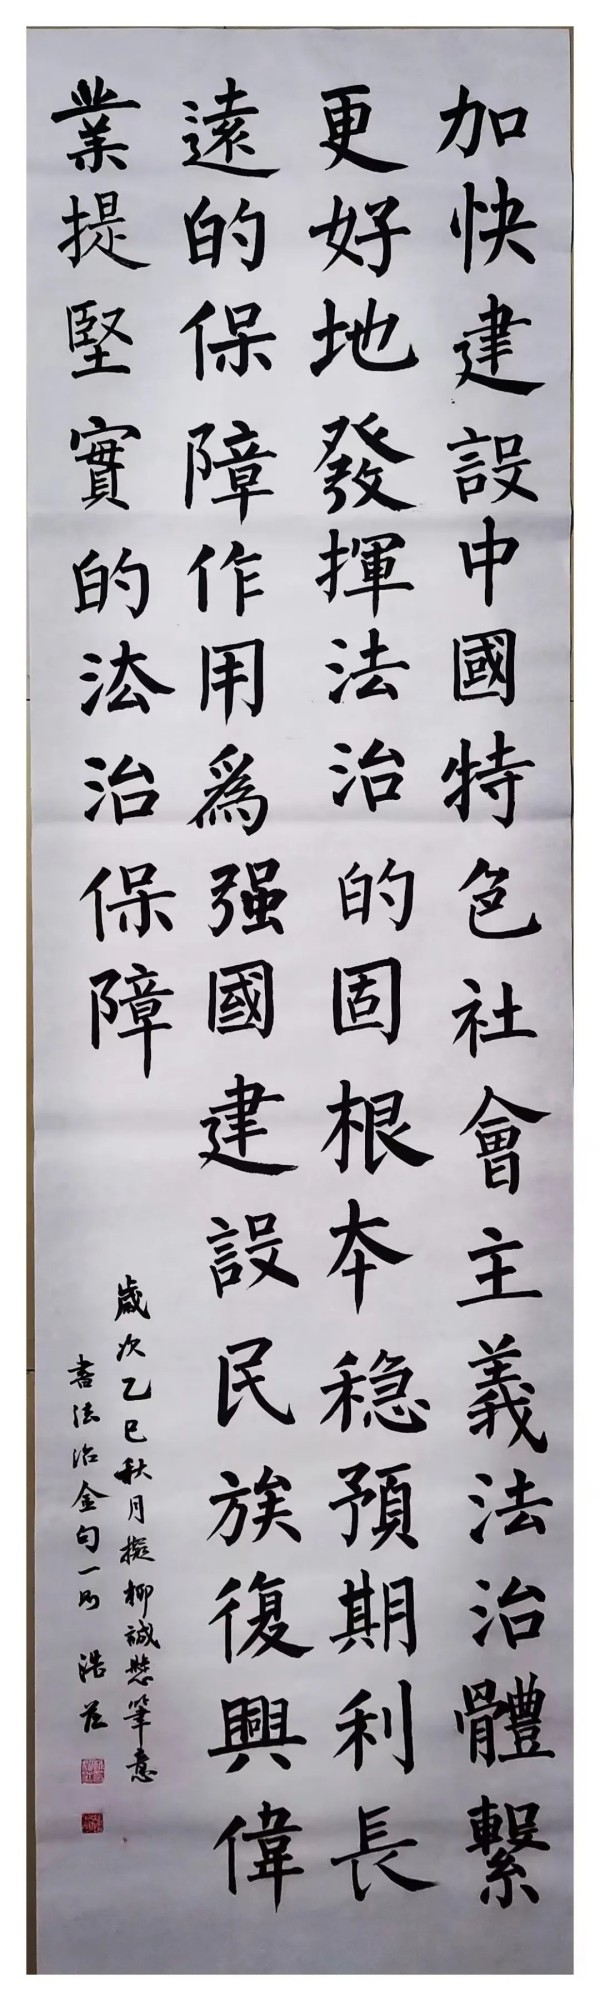 加快建設中國特色社會主義法治體繫
更好地發揮法治的固根本稳預期利長
遠的保障作用爲强國建設民族復興偉
業提堅實的法治保障
歲次乙巳秋月擬柳誠懸筆意
書法治金句一則 浩